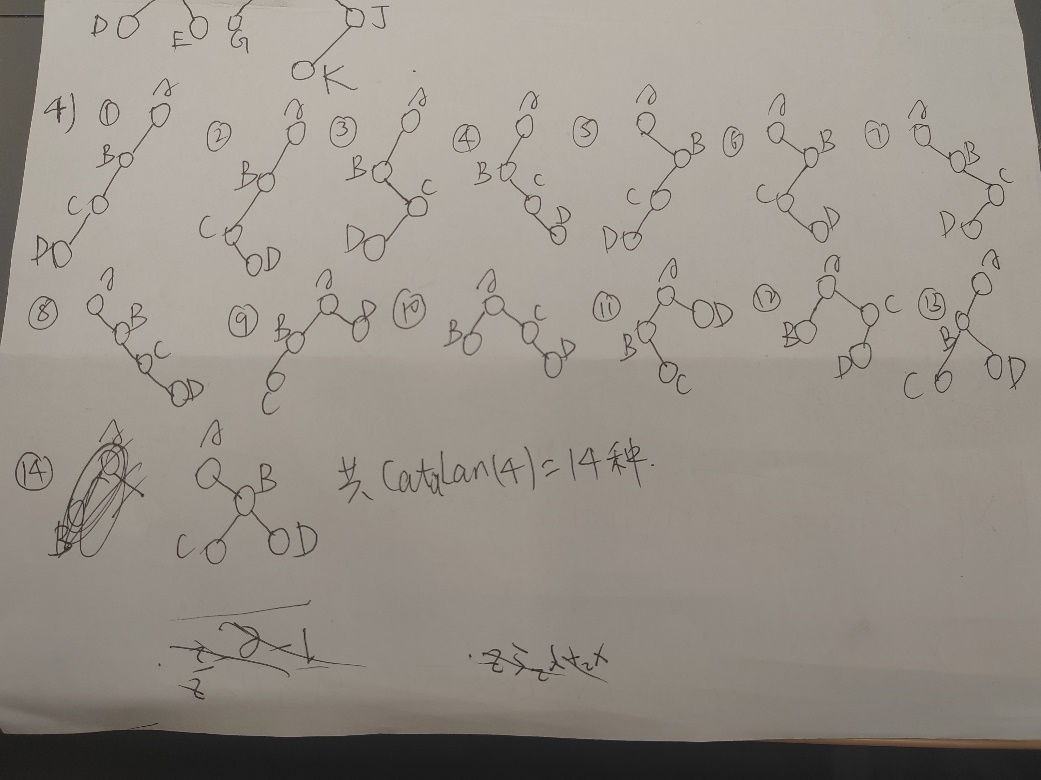 D E G J
K
4) ① A B C D ② A B C D ③ A B C D ④ A B C D ⑤ A B C D ⑥ A B C D ⑦ A B C D
⑧ A B C D ⑨ A B C D ⑩ A B C D ⑪ A B C D ⑫ A B C D ⑬ A B C D
⑭ A B C D 共 Catalan(4)=14种.